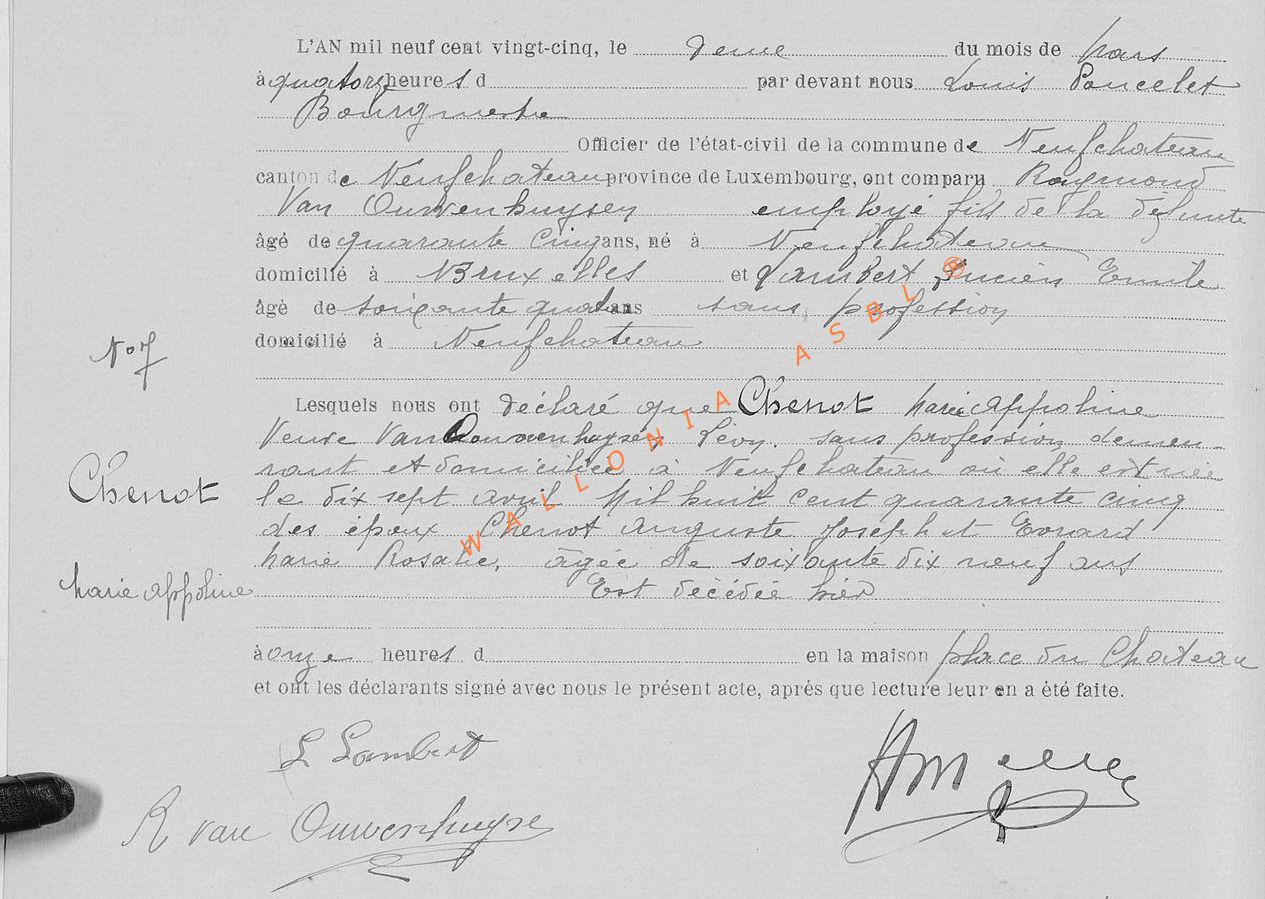 L'AN mil neuf cent vingt-cinq, le deux du mois de Mars
à quatorze heures d par devant nous Louis Poncelet
Bourgmestre
Officier de l'état-civil de la commune de Neufchateau
canton de Neufchateau province de Luxembourg, ont comparu Raymond
Van Ouwenhuysen employé fils de la défunte
âgé de quarante cinq ans, né à Neufchateau
domicilié à Bruxelles et Lambert Lucien Emile
âgé de soixante quatre ans sans profession
domicilié à Neufchateau
No 7
Lesquels nous ont déclaré que Chenot Marie Appoline
Veuve Van Ouwenhuysen Lévy. sans profession demeu-
rant et domiciliée à Neufchateau où elle est née
Chenot
le dix sept avril Mil huit cent quarante cinq
des époux Chenot Auguste Joseph et Evrard
Marie Rosalie, âgée de soixante dix neuf ans
Marie Appoline
Est décédée hier
à onze heures d en la maison place du Chateau
et ont les déclarants signé avec nous le présent acte, après que lecture leur en a été faite.
L Lambert
R van Ouwenhuyse
WALLONIA ASBL ®